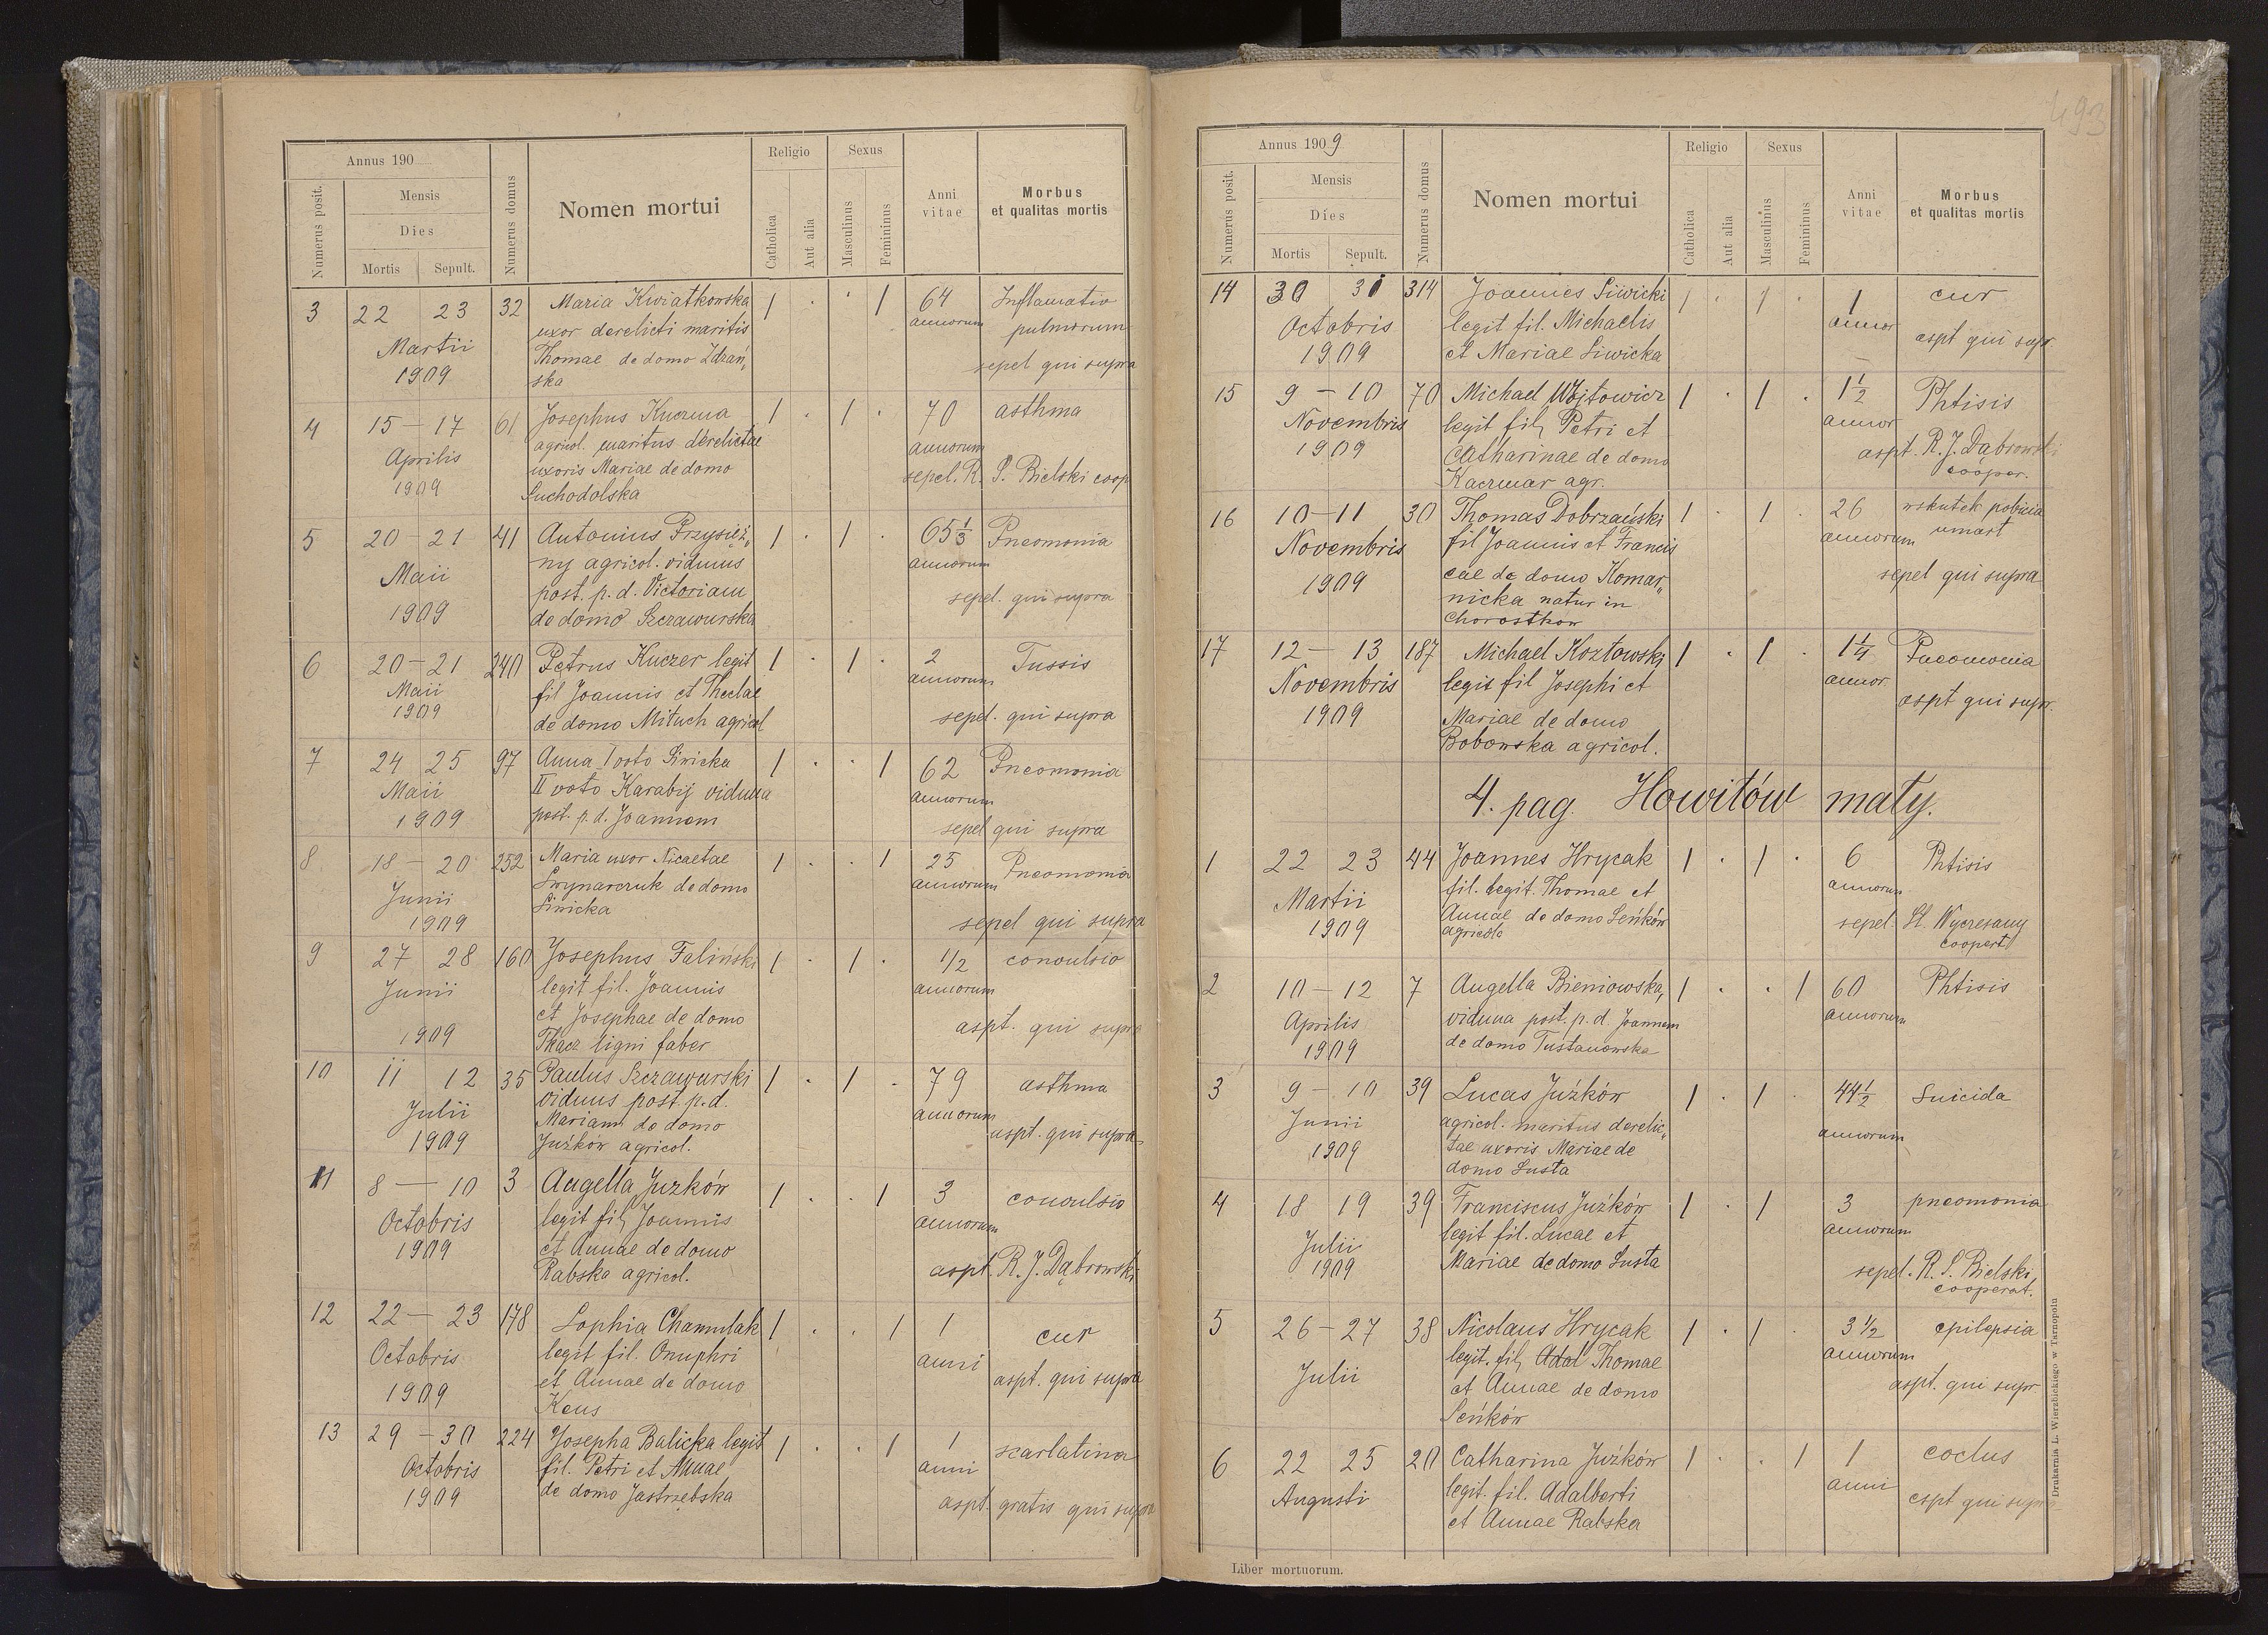 Annus 190
Numerus posit.
Mensis
Dies
Mortis Sepult.
Numerus domus
Nomen mortui
Religio
Catholica
Aut alia
Sexus
Masculinus
Femininus
Anni vitae
Morbus
et qualitas mortis
3 22 23 32 Maria Kwiatkowska 1 . . 1 64 Inflamatio
uxor derelicti mariti annorum pulmorum
Martii Thomae de domo Zdrań„ sepel qui supra
1909 ska
4 15 — 17 61 Josephus Kuczma 1 . 1 . 70 asthma
agricol. maritus derelictae annorum
Aprilis uxoris Mariae de domo sepel. R. S. Bielski coop
1909 Suchodolska
5 20 – 21 41 Antonius Przysięż„ 1 . 1 . 65 1/3 Pneomonia
ny agricol. viduus annorum
Maii post. p. d. Victoriam sepel. qui supra
1909 de domo Szczawurska
6 20 – 21 240 Petrus Kuczer legit 1 . 1 . 2 Tussis
Maii fil Joannis et Theclae annorum
1909 de domo Mituch agricol sepel. qui supra
7 24 25 97 Anna I voto Siwicka 1 . . 1 62 Pneomonia
Maii II voto Karabij vidua annorum
1909 post. p. d. Joannem sepel qui supra
8 18 – 20 252 Maria uxor Nicaetae 1 . . 1 25 Pneomonia
Junii de domo annorum
1909 Siwicka sepel qui supra
9 27 28 160 Josephus Faliński 1 . 1 . 1/2 convulsio
Junii legit fil. Joannis annorum
et Josephae de domo aspt. qui supra
1909 Tkacz ligni faber
10 11 12 35 Paulus Szczawurski 1 . 1 . 79 asthma
viduus post. p. d.
Julii Mariam de domo annorum aspt. qui supra
1909 Juźków agricol.
11 8 — 10 3 Angella Juzków 1 . . 1 3 convulsio
Octobris legit fil Joannis annorum
1909 et Annae de domo aspt. R. J. Dąbrowski
Rabska agricol.
12 22 — 23 178 Sophia Chamulak 1 . . 1 1 cur
Octobris legit fil. Onuphri anni
1909 et Annae de domo aspt. qui supra
Keus
13 29 – 30 224 Josepha Balicka legit 1 . . 1 1 scarlatina
Octobris fil. Petri et Annae anni
1909 de domo Jastrzębska aspt. gratis qui supra
493
Annus 1909
Numerus posit.
Mensis
Dies
Mortis Sepult.
Numerus domus
Nomen mortui
Religio
Catholica
Aut alia
Sexus
Masculinus
Femininus
Anni vitae
Morbus
et qualitas mortis
14 30 31 314 Joannes Siwicki 1 . 1 . 1 cur
Octobris legit fil. Michaelis annor
1909 et Mariae Siwicka aspt qui supr
15 9 – 10 70 Michael Wojtowicz 1 . 1 . 1 1/2 Phtisis
Novembris legit fil Petri et annor
1909 Catharinae de domo aspt. R. J. Dąbrowski
Kaczmar agr. cooper.
16 10 – 11 30 Thomas Dobrzański 1 . 1 . 26 wskutek pobicia
Novembris fil Joannis et Francis annorum umart
1909 cae de domo Komar„ sepel qui supra
nicka natur in
Chorostkow
17 12 — 13 187 Michael Kozłowski 1 . 1 . 1 1/4 Pneomonia
Novembris legit fil Josephi et annor.
1909 Mariae de domo aspt qui supr.
Bobowska agricol.
4. pag. Howiłów mały.
1 22 23 44 Joannes Hrycak 1 . 1 . 6 Phtisis
Martii fil. legit. Thomae et annorum
1909 Annae de domo Seńków sepel. St. Wyczesany
agricola coopert
2 10 – 12 7 Angella Bieniowska, 1 . . 1 60 Phtisis
Aprilis vidua post. p. d. Joannem annorum
1909 de domo Tustanowska
3 9 – 10 39 Lucas Juźków 1 . 1 . 44 1/2 Suicida
Junii agricol. maritus derelic„ annorum
1909 tae uxoris Mariae de
domo Susta
4 18 19 39 Franciscus Juźków 1 . 1 3 pneomonia
Julii legit fil. Lucae et annorum
1909 Mariae de domo Susta sepel. R. S. Bielski,
cooperat.
5 26 – 27 38 Nicolaus Hrycak 1 . 1 . 3 1/2 epilepsia
legit. fil, Adal Thomae annorum
Julii et Annae de domo aspt. qui supr
Seńków
6 22 25 20 Catharina Juźków 1 . . 1 1 coclus
Augusti legit. fil. Adalberti anni
et Annae Rabska aspt qui supra
Liber mortuorum.
Drukarnia L. Wierzbickiego w Tarnopolu